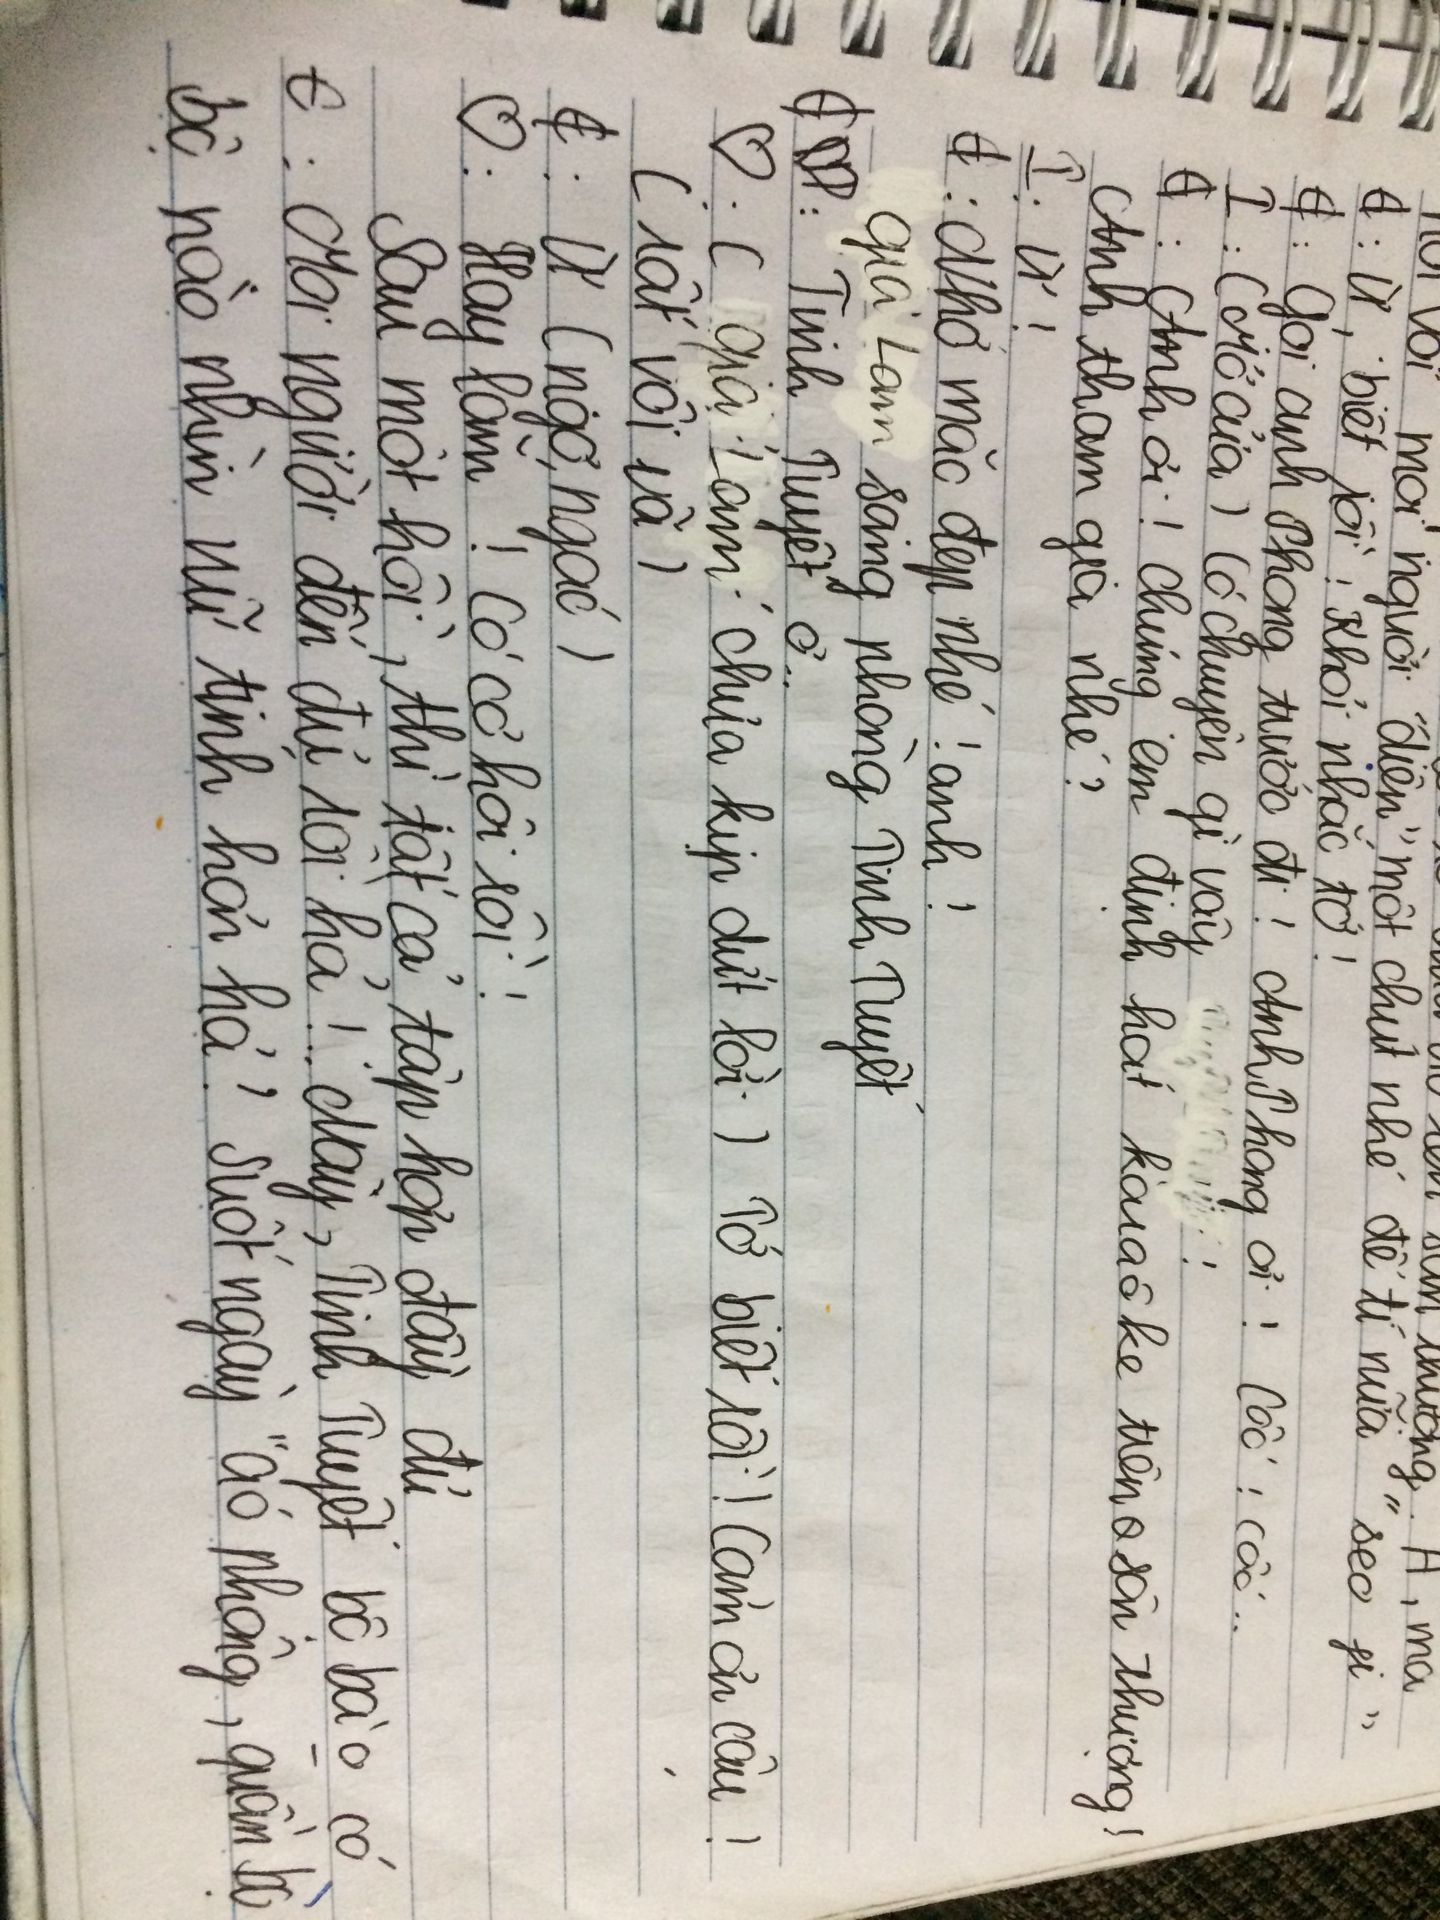 nói với mọi người "diện" một chút nhé để tí nữa "seo ji"
A: Ừ, biết rồi! Khỏi nhắc tớ!
A: Gọi anh Phong trước đi! Anh Phong ơi! Cốc! cốc..
I: (Mở cửa) Có chuyện gì vậy
A: Anh ơi! Chúng em định hát karaoke trên sân thượng!
Anh tham gia nhé?
I: Ừ!
A: Nhớ mặc đẹp nhé! anh!
Giả Lam sang phòng Tinh Tuyết
A: Tinh Tuyết ơ..
♡: (Giả Lam chưa kịp dứt lời) Tớ biết rồi! Cảm ơn cậu!
(rất vội vã)
A: Ừ (ngơ ngác)
♡: Hay lắm! Có cơ hội rồi!
Sau một hồi, thì tất cả tập hợp đầy đủ
A: Mọi người đến đủ rồi hả!.. Này, Tinh Tuyết bộ bà có
bộ nào nhìn nữ tính hơn hả? Suốt ngày "áo phông, quần bò